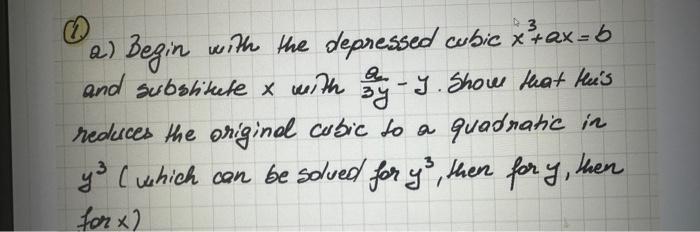 1.
a) Begin with the depressed cubic x³+ax=b
and substitute x with a/3y - y. Show that this
reduces the original cubic to a quadratic in
y³ (which can be solved for y³, then for y, then
for x)